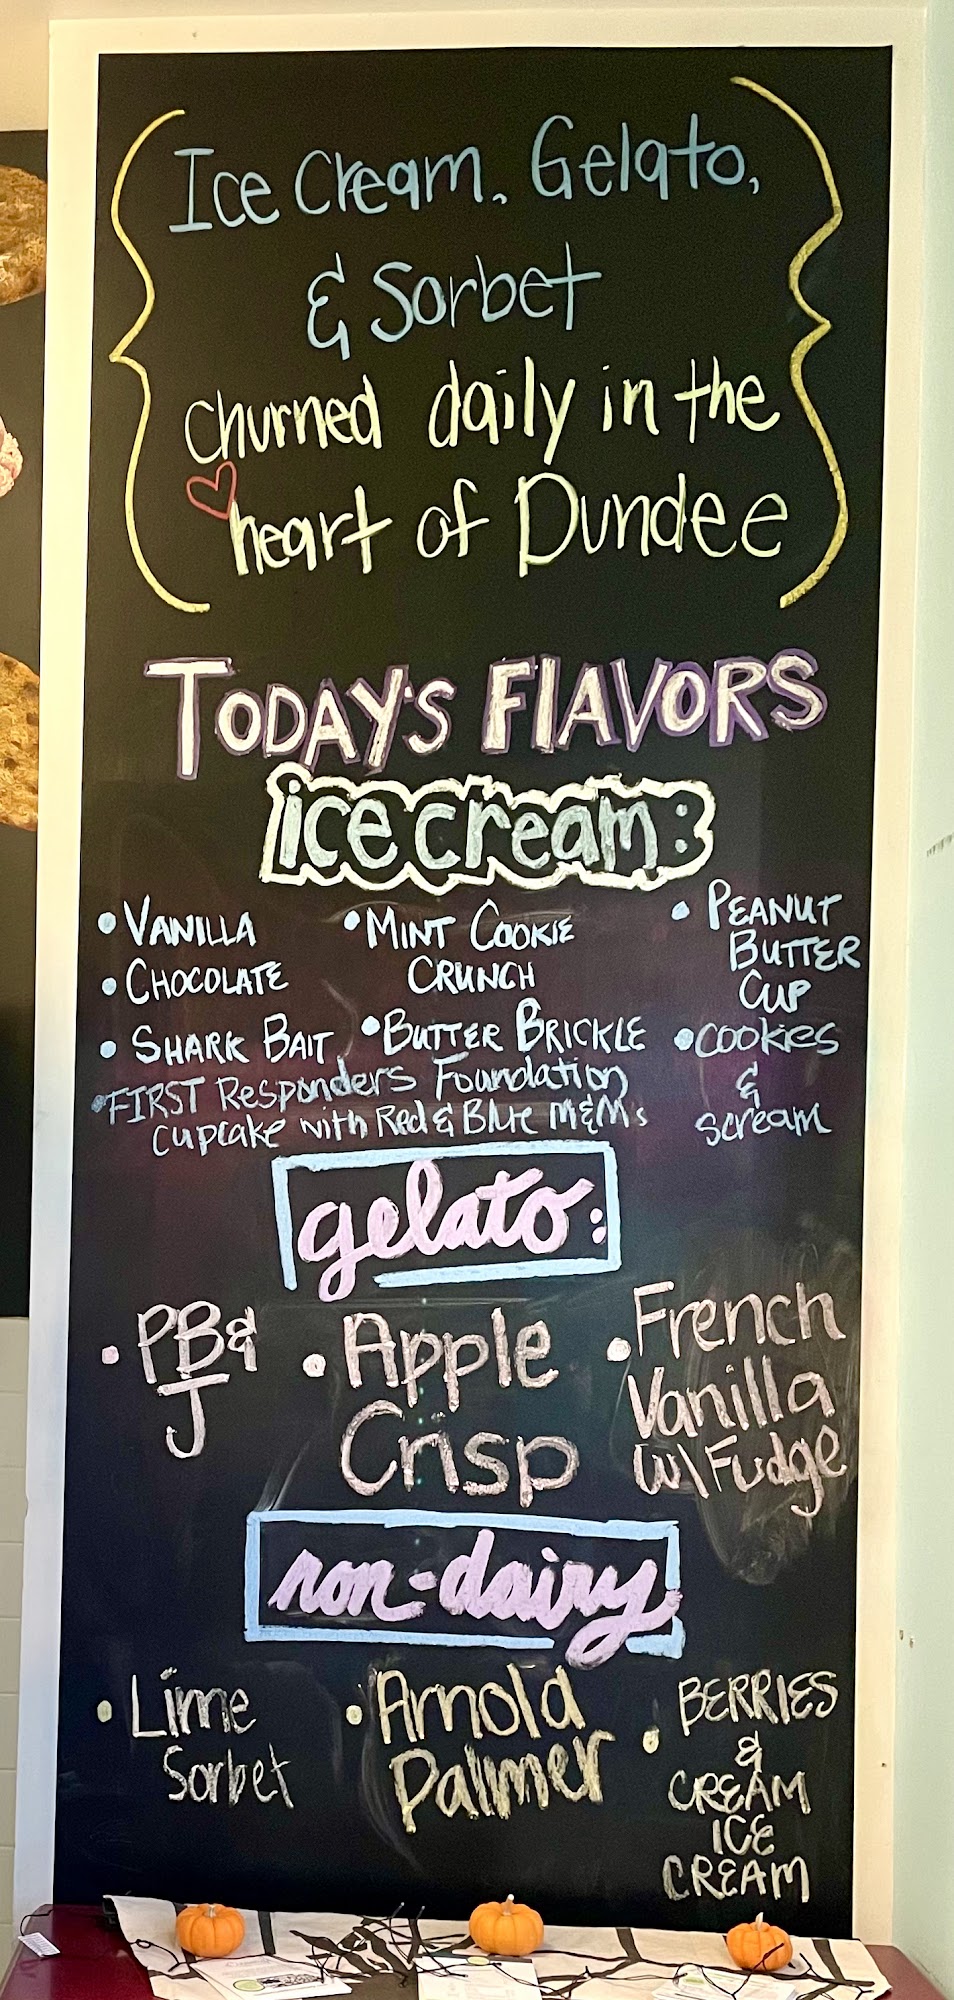 Ice Cream, Gelato,
& Sorbet
churned daily in the
heart of Dundee
TODAY'S FlAVORS
ice cream:
• VANILLA
• CHOCOLATE
• SHARK BAIT
• MINT COOKIE
CRUNCH
• BUTTER BRICKLE
• FIRST Responders Foundation
cupcake with Red & Blue M&Ms
• PEANUT
BUTTER
CUP
• cookies
&
scream
gelato:
• PB&
J
• Apple
Crisp
• French
Vanilla
w/ Fudge
non-dairy
• Lime
Sorbet
• Arnold
Palmer
• BERRIES
&
CREAM
ICE
CREAM